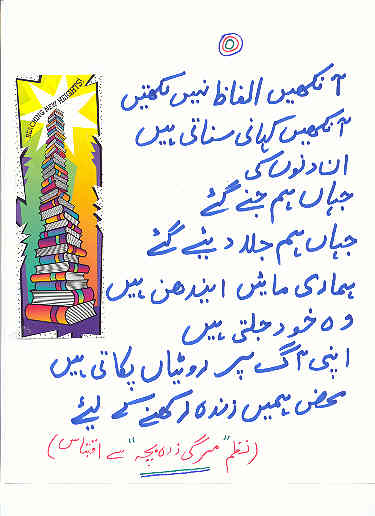 REACHING NEW HEIGHTS!
آنکھیں الفاظ نہیں لکھتیں
آنکھیں کہانی سناتی ہیں
ان دنوں کی
جہاں ہم جنے گئے
جہاں ہم جلد دیئے گئے
ہماری مائیں ایندھن ہیں
وہ خود جلتی ہیں
اپنی آگ پر روٹیاں پکاتی ہیں
محض ہمیں زندہ رکھنے کے لیئے
(نظم "مرگی زدہ بچہ" سے اقتباس)